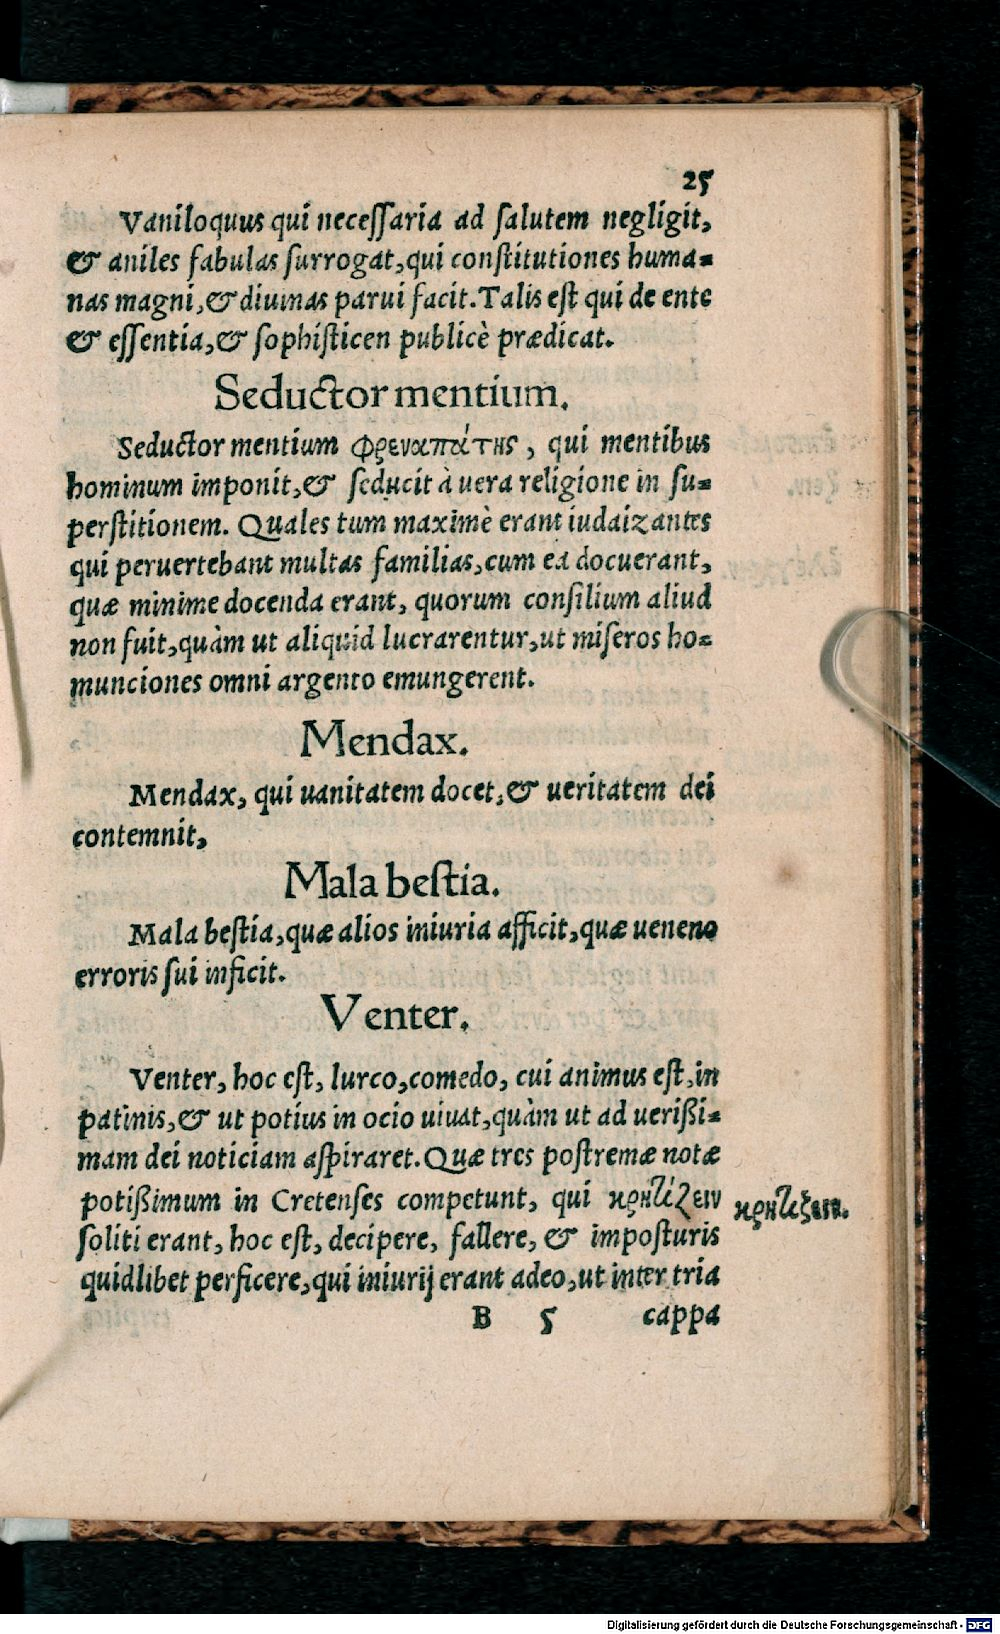 25
Vaniloquus qui necessaria ad salutem negligit,
& aniles fabulas surrogat, qui constitutiones huma=
nas magni, & diuinas parui facit. Talis est qui de ente
& essentia, & sophisticen publicè prædicat.
Seductor mentium.
Seductor mentium φρεναπάτης, qui mentibus
hominum imponit, & seducit à uera religione in su=
perstitionem. Quales tum maximè erant iudaizantes
qui peruertebant multas familias, cum ea docuerant,
quæ minime docenda erant, quorum consilium aliud
non fuit, quàm ut aliquid lucrarentur, ut miseros ho=
munciones omni argento emungerent.
Mendax.
Mendax, qui uanitatem docet, & ueritatem dei
contemnit,
Mala bestia.
Mala bestia, quæ alios iniuria afficit, quæ ueneno
erroris sui inficit.
Venter.
Venter, hoc est, lurco, comedo, cui animus est, in
patinis, & ut potius in ocio uiuat, quàm ut ad uerißi=
mam dei noticiam aspiraret. Quæ tres postremæ notæ
potißimum in Cretenses competunt, qui κρητίζειν
κρητίζειν.
soliti erant, hoc est, decipere, fallere, & imposturis
quidlibet perficere, qui iniurij erant adeo, ut inter tria
B 5 cappa
Digitalisierung gefördert durch die Deutsche Forschungsgemeinschaft - DFG